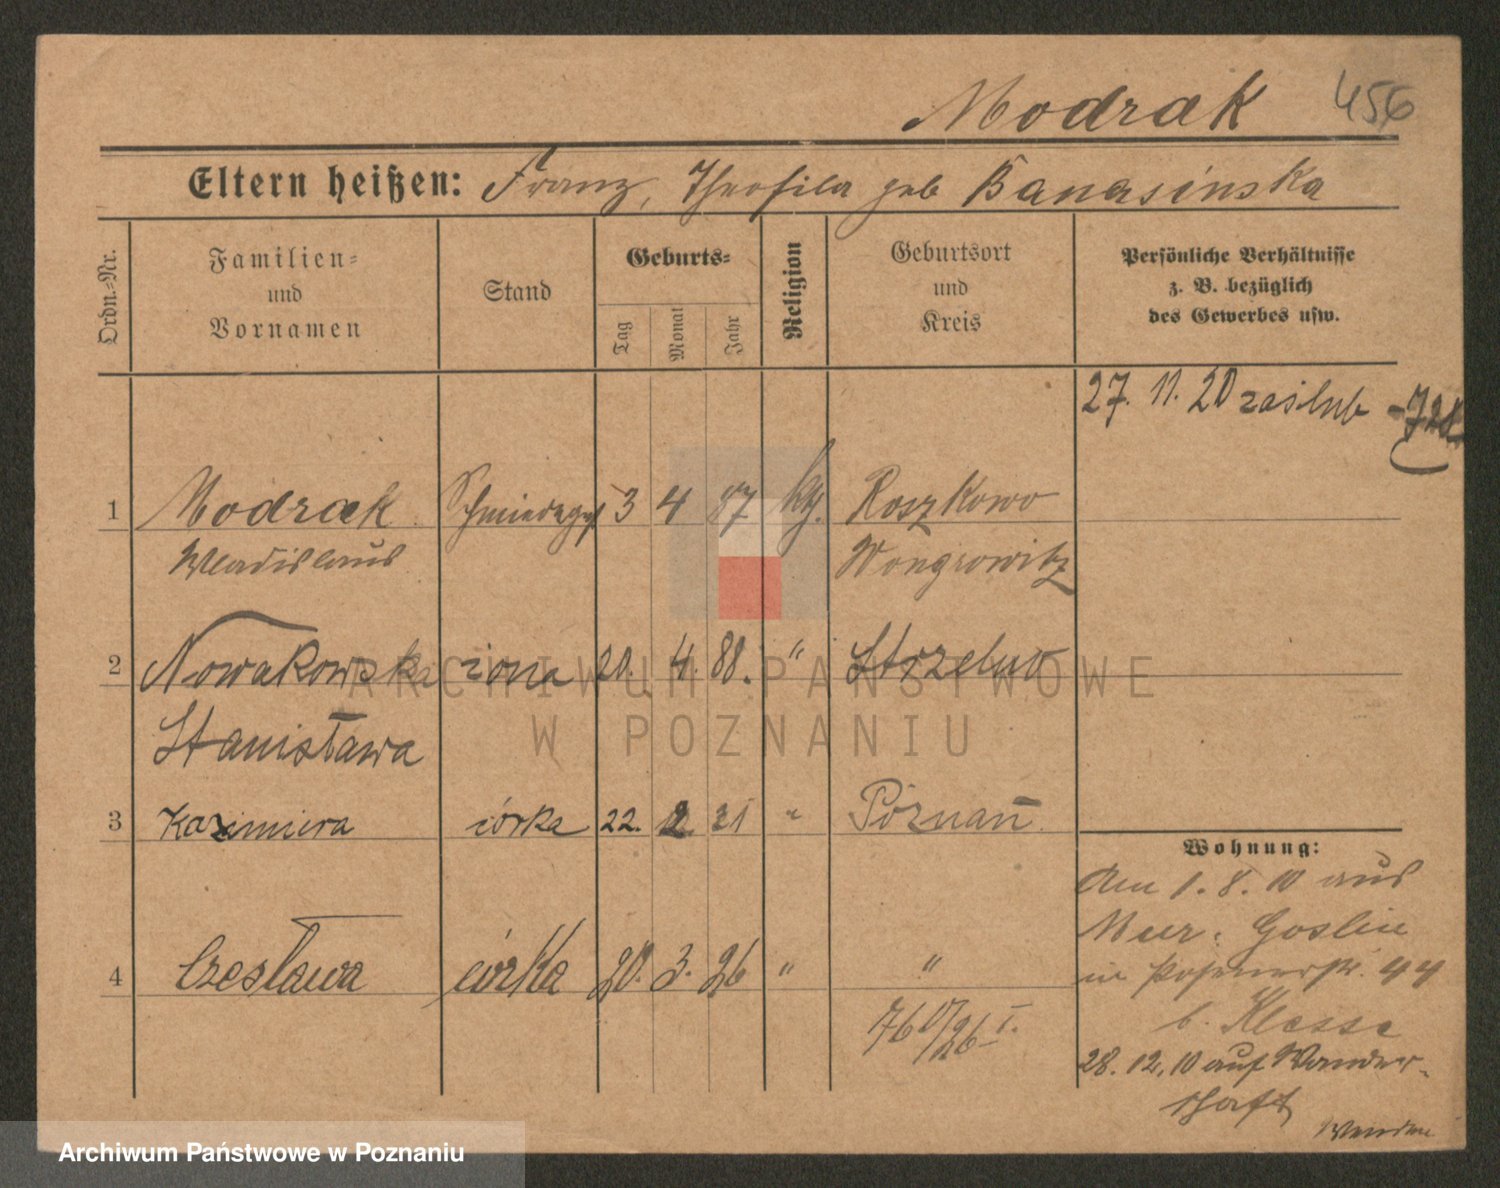 Modrak 456
Eltern heißen: Franz, Theofila geb Banasinska
Ordn.-Nr.
Familien- und Vornamen
Stand
Geburts-
Tag Monat Jahr
Religion
Geburtsort und Kreis
Persönliche Verhältnisse
z. B. bezüglich
des Gewerbes usw.
27. 11. 20 zaślub - 728
1 Modrak Schmiedeges 3 4 87 kg. Roszkowo
Wladislaus Wongrowitz
2 Nowakowska żona 20. 4. 88. " Strzelno
Stanisława
3 Kazimiera córka 22. 2 21 " Poznań
4 Czesława córka 20. 3. 26 " "
Wohnung:
Am 1. 8. 10 aus
Mur. Goslin
in Posenerstr. 44
b. Klesse
28. 12. 10 auf Wander-
schaft
ARCHIWUM PAŃSTWOWE
W POZNANIU
Archiwum Państwowe w Poznaniu